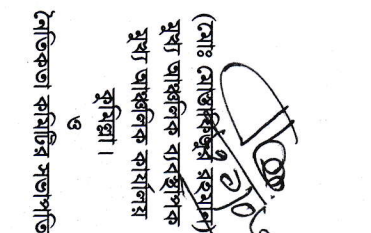 (মোঃ মোস্তাফিজুর রহমান)
মুখ্য আঞ্চলিক ব্যবস্থাপক
মুখ্য আঞ্চলিক কার্যালয়
কুমিল্লা।
ও
নৈতিকতা কমিটির সভাপতি